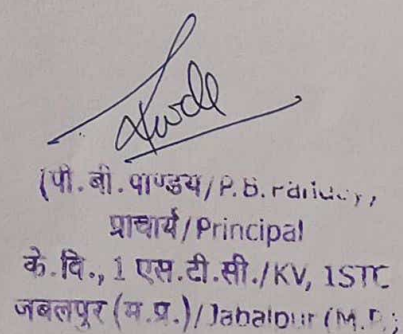 (पी.बी.पाण्डेय/P.B.
प्राचार्य/Principal
के.वि., 1 एस.टी.सी./KV, 1STC
जबलपुर (म.प्र.)/Jabalpur (M.P.)